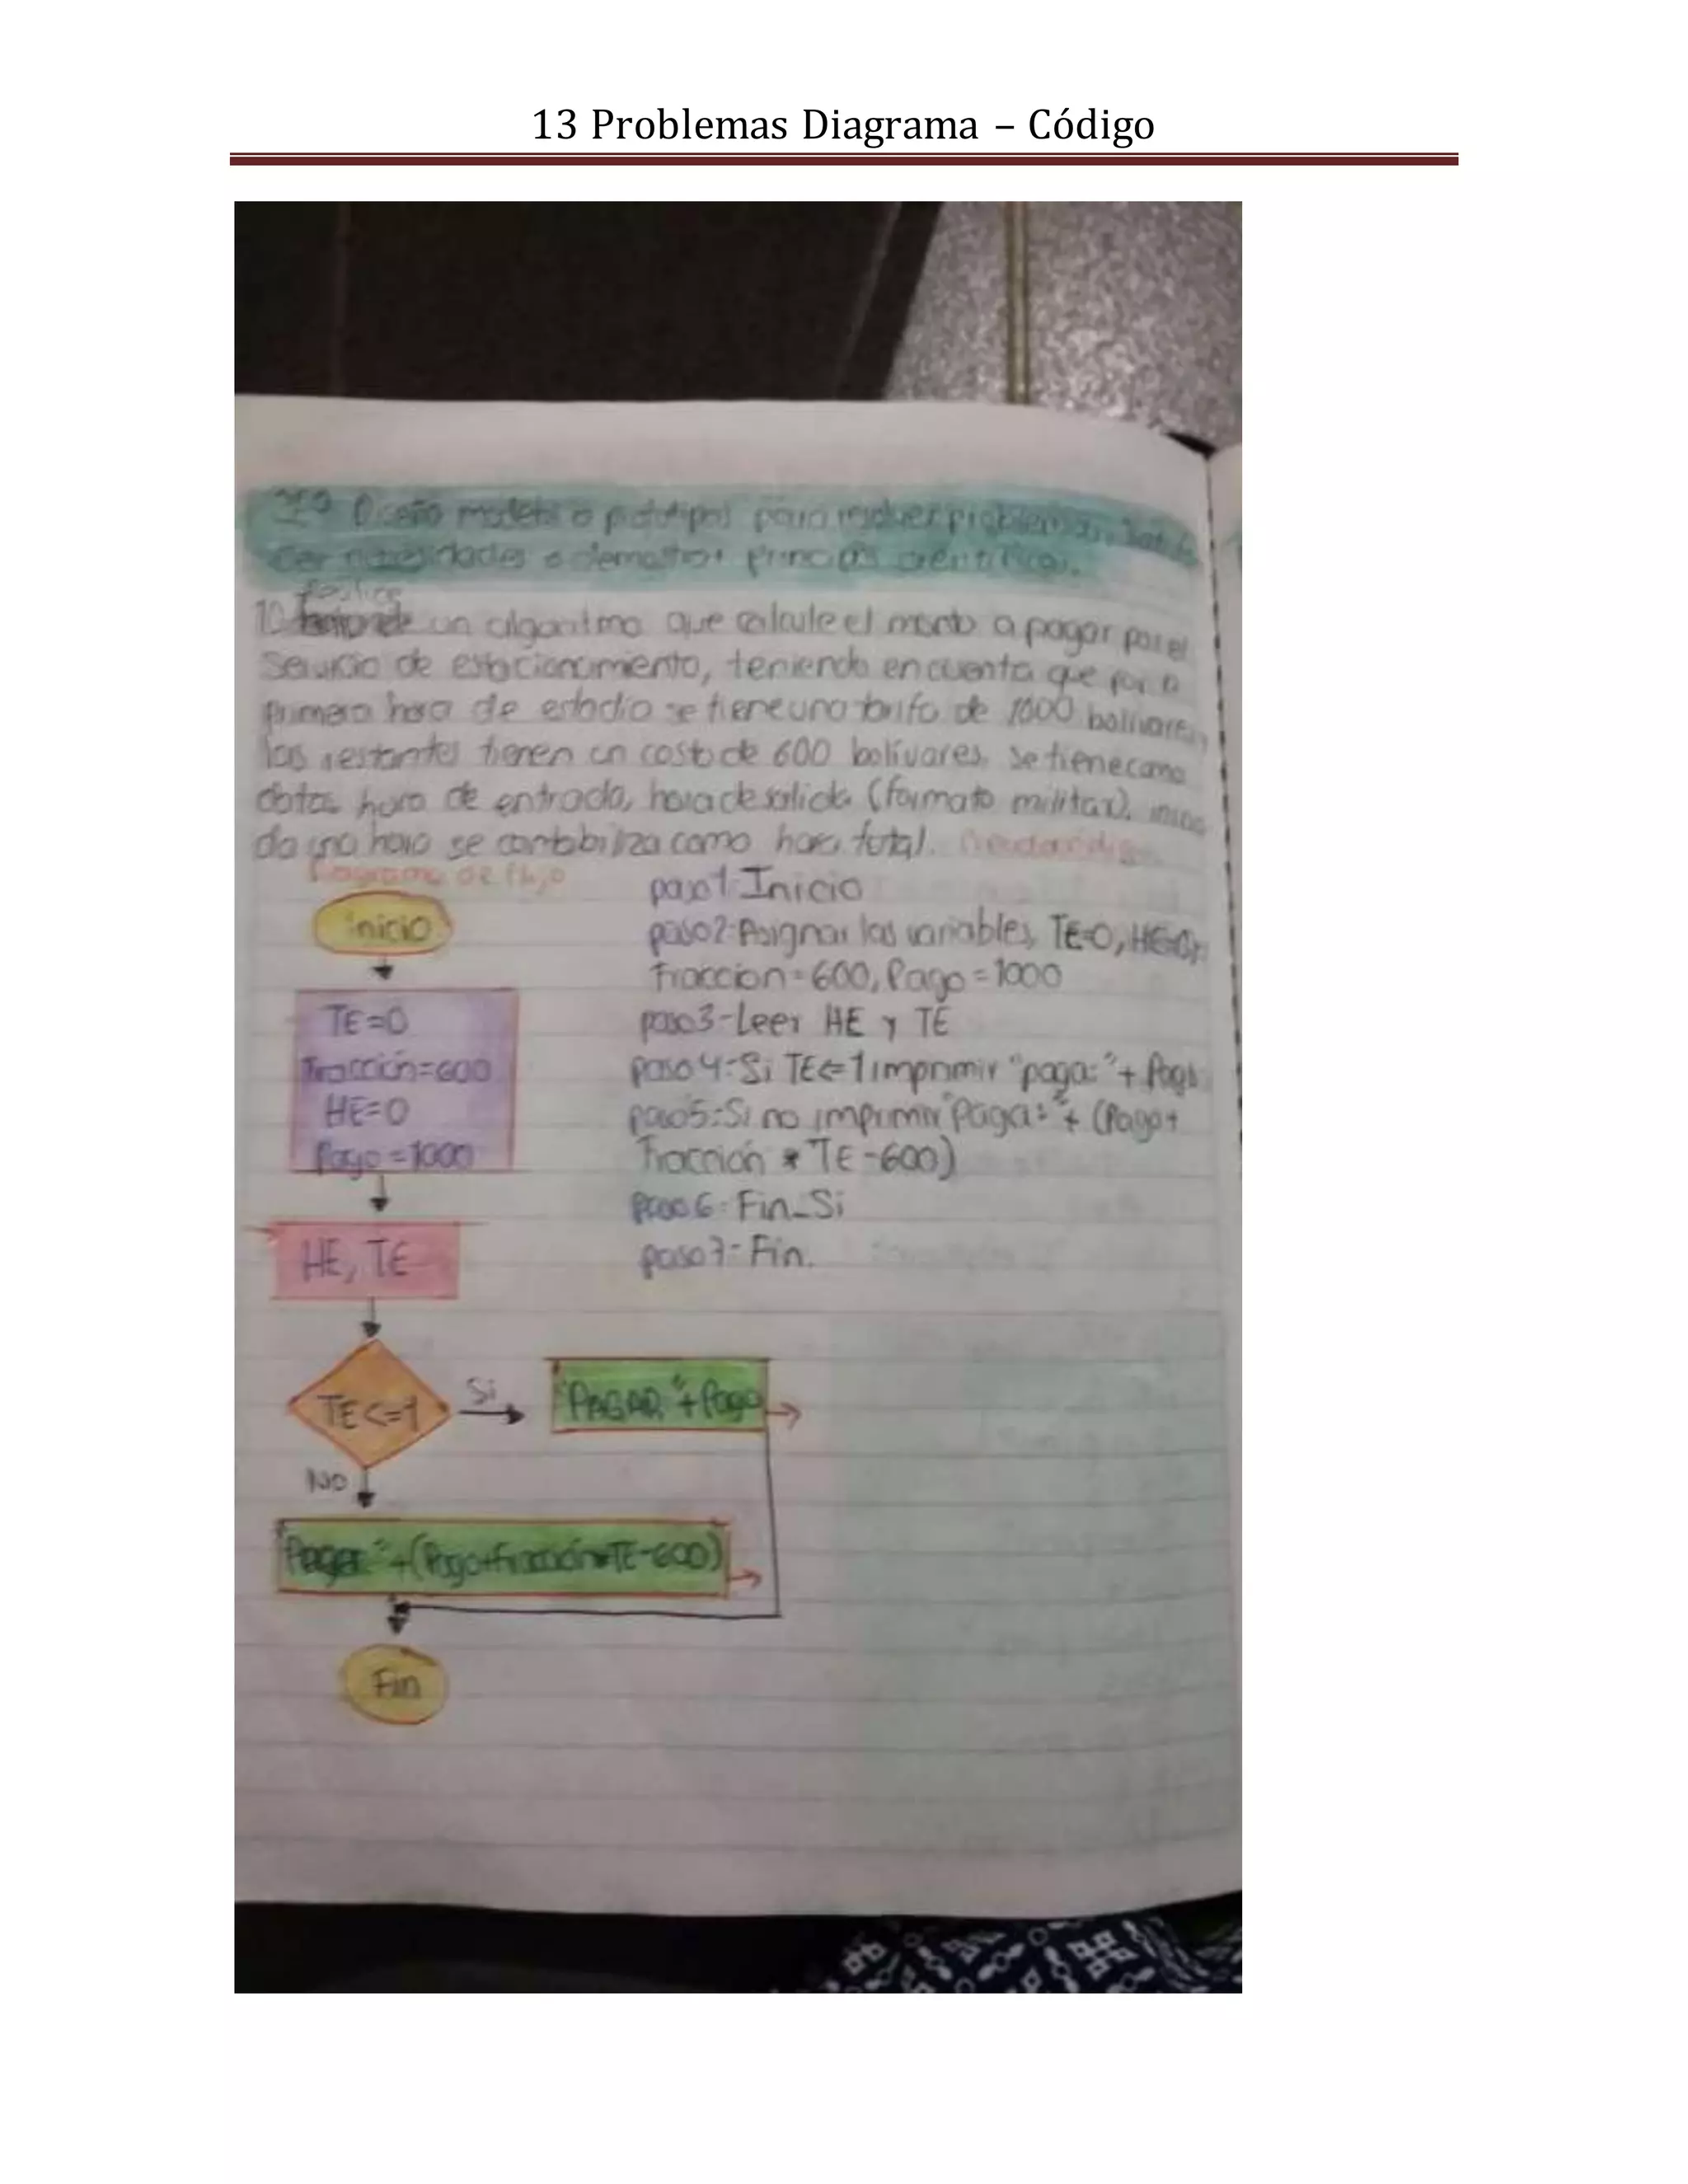 13 Problemas Diagrama – Código
Diseño modelos o prototipos para resolver problemas,
cer necesidades o demostrar principios científicos.
Realice
10 un algoritmo que calcule el monto a pagar por el
servicio de estacionamiento, teniendo en cuenta que por la
primera hora de estadio se tiene una tarifa de 1000 bolivares,
las restantes tienen un costo de 600 bolívares. Se tiene como
datos hora de entrada, hora de salida (formato militar),
da una hora se contabiliza como hora total.
Diagrama de flujo
paso1: Inicio
inicio
paso2: Asignar las variables, TE=0, HE=0,
Fraccion=600, Pago=1000
TE=0
paso3-Leer HE y TE
Fracción=600
paso4:-Si TE<=1 imprimir "paga:"+ Pago
HE=0
paso5:-Si no imprimir "Paga:"+ (Pago+
Pago=1000
Fracción * TE-600)
paso6: Fin_Si
HE, TE
paso7- Fin.
TE<=1
Si
"PAGAR "+Pago
No
"Pagar "+(Pago+Fracción*TE-600)
Fin